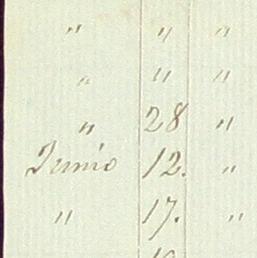 " " "
" " "
" 28 "
Junio 12. "
" 17. "